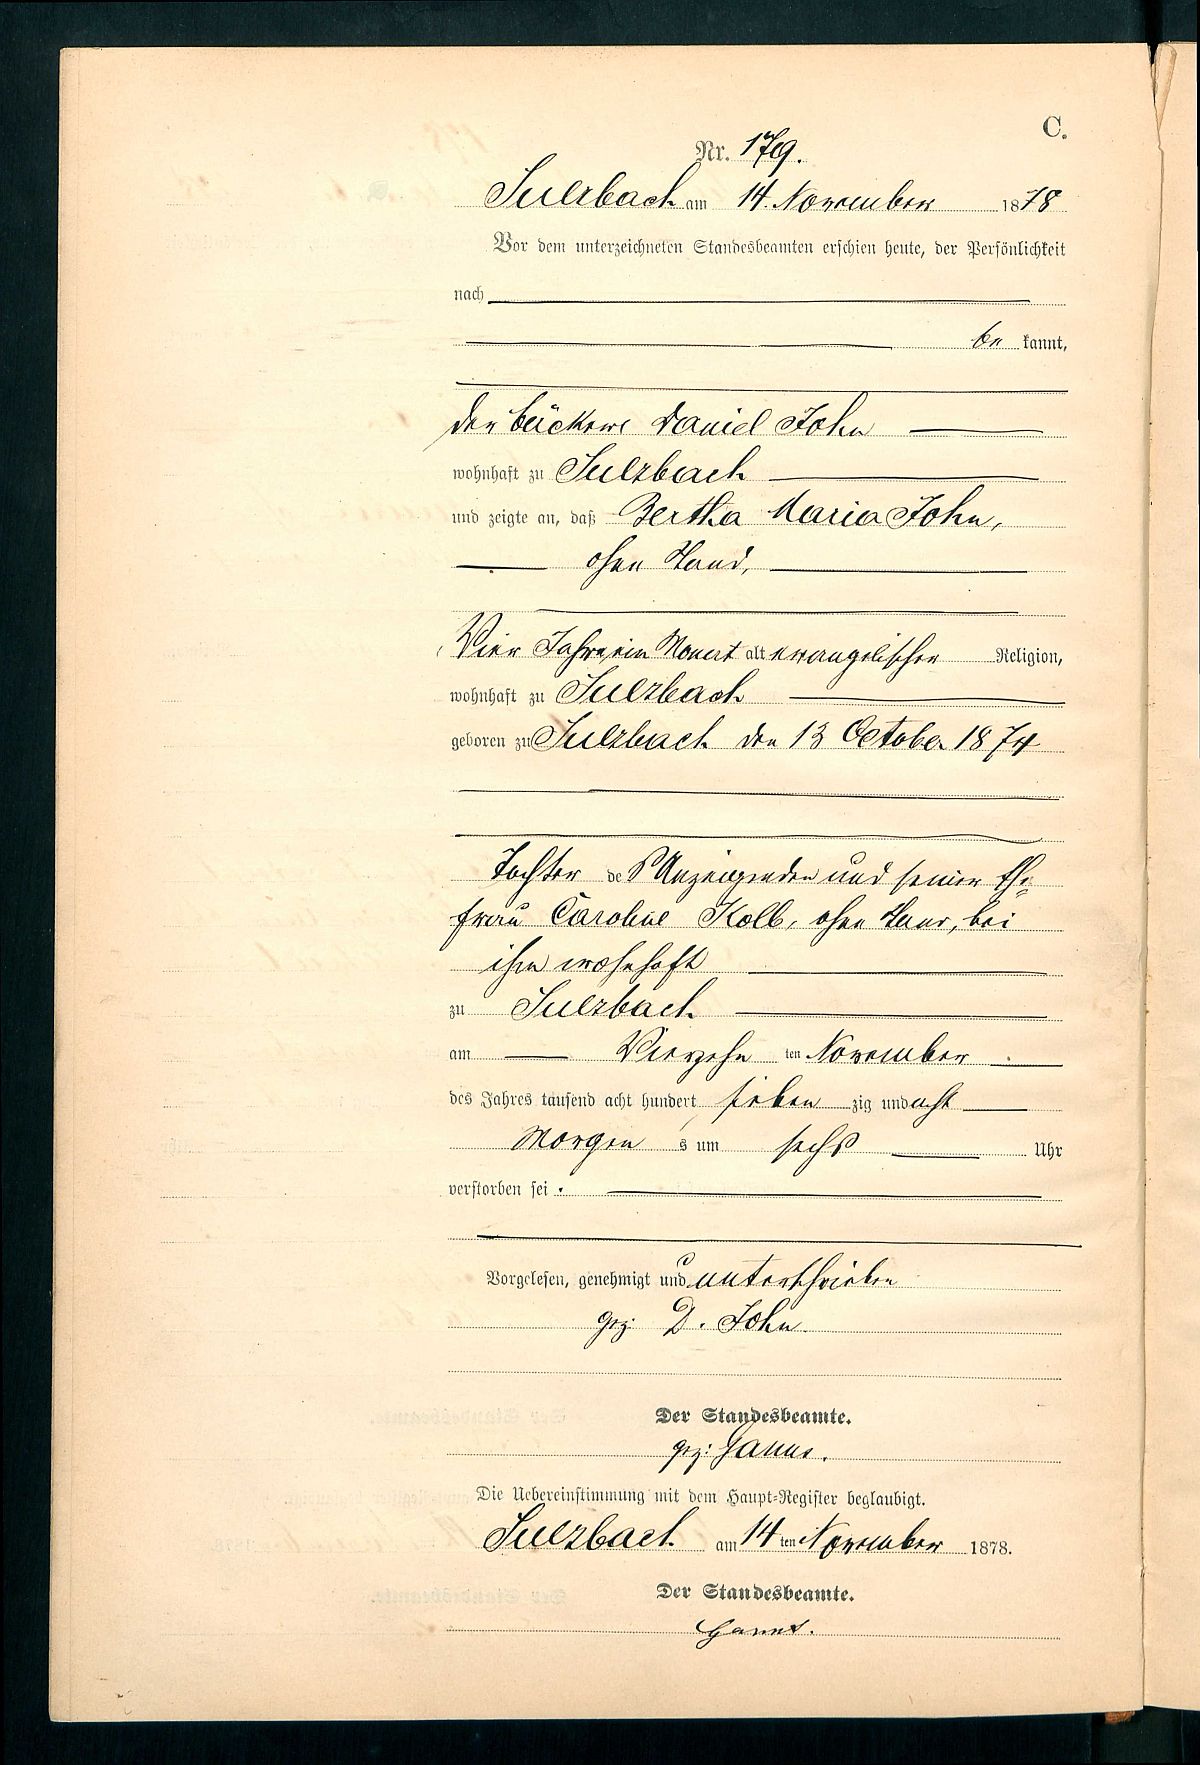 C.
Nr. 179.
Sulzbach am 14. November 1878
Vor dem unterzeichneten Standesbeamten erschien heute, der Persönlichkeit
nach
be kannt,
der Bäckers Daniel John
wohnhaft zu Sulzbach
und zeigte an, daß Bertha Maria John,
ohne Stand,
Vier Jahre ein Monat alt evangelischer Religion,
wohnhaft zu Sulzbach
geboren zu Sulzbach den 13 October 1874
Tochter des Anzeigenden und seiner Ehe-
frau Caroline Kolb, ohne Stand, bei
ihm wohnhaft
zu Sulzbach
am Vierzehn ten November
des Jahres tausend acht hundert sieben zig und acht
Morgen s um sechs Uhr
verstorben sei.
Vorgelesen, genehmigt und unterschrieben
gez: D. John.
Der Standesbeamte.
gez:
Die Uebereinstimmung mit dem Haupt-Register beglaubigt.
Sulzbach am 14 ten November 1878.
Der Standesbeamte.